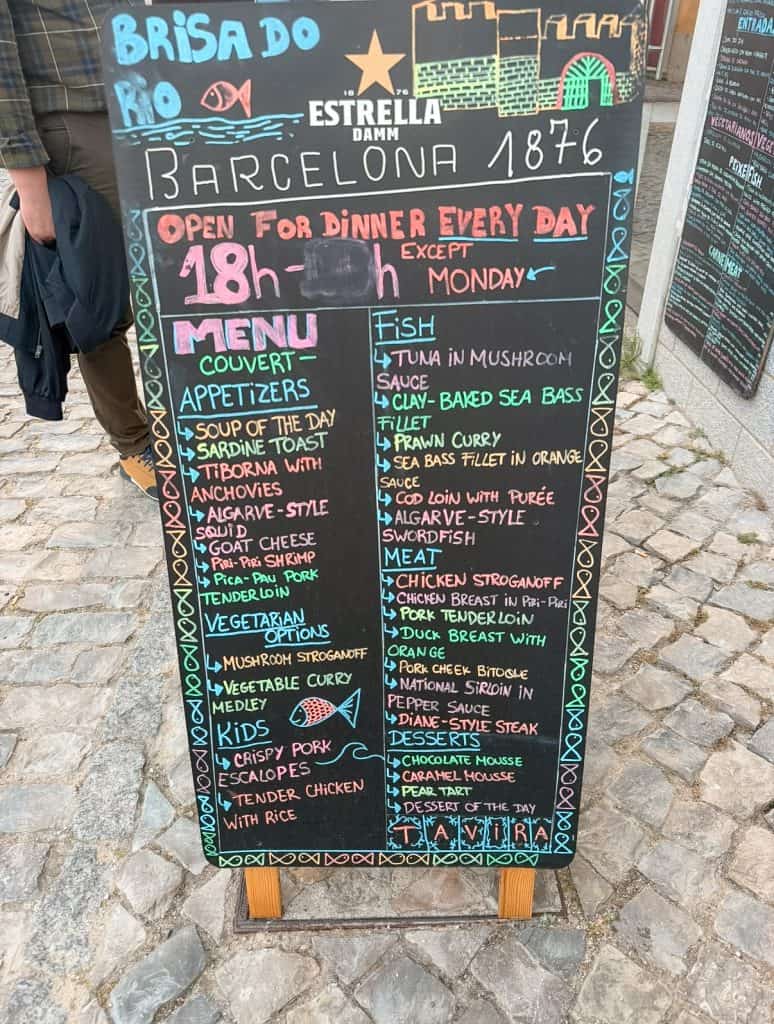 BRISA DO
RIO
1876
ESTRELLA
DAMM
BARCELONA 1876
OPEN FOR DINNER EVERY DAY
18h- h EXCEPT
MONDAY
MENU
COUVERT-
APPETIZERS
SOUP OF THE DAY
SARDINE TOAST
TIBORNA WITH
ANCHOVIES
ALGARVE-STYLE
SQUID
GOAT CHEESE
PIRI-PIRI SHRIMP
PICA-PAU PORK
TENDERLOIN
VEGETARIAN
OPTIONS
MUSHROOM STROGANOFF
VEGETABLE CURRY
MEDLEY
KIDS
CRISPY PORK
ESCALOPES
TENDER CHICKEN
WITH RICE
FISH
TUNA IN MUSHROOM
SAUCE
CLAY-BAKED SEA BASS
FILLET
PRAWN CURRY
SEA BASS FILLET IN ORANGE
SAUCE
COD LOIN WITH PURÉE
ALGARVE-STYLE
SWORDFISH
MEAT
CHICKEN STROGANOFF
CHICKEN BREAST IN PIRI-PIRI
PORK TENDERLOIN
DUCK BREAST WITH
ORANGE
PORK CHEEK BITOQUE
NATIONAL SIRLOIN IN
PEPPER SAUCE
DIANE-STYLE STEAK
DESSERTS
CHOCOLATE MOUSSE
CARAMEL MOUSSE
PEAR TART
DESSERT OF THE DAY
TAVIRA
ENTRADA
PEIXE/FISH
CARNE/MEAT